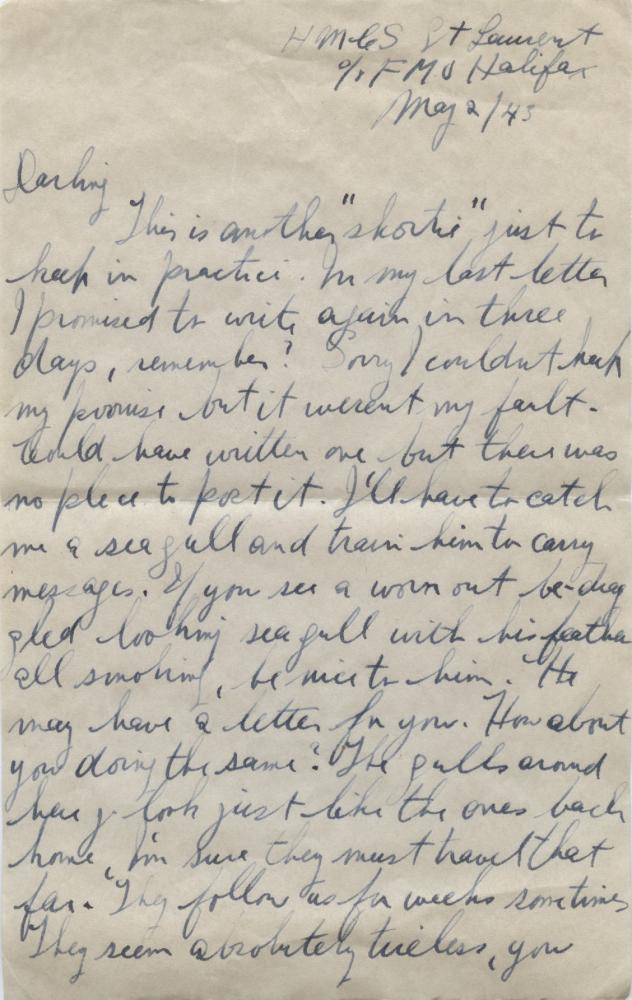 HMCS St Laurent
c/o FMO Halifax
May 2/43
Darling
This is another "shortie" just to
keep in practice. In my last letter
I promised to write again in three
days, remember? Sorry I couldnt keep
my promise but it werent my fault.
Could have written one but there was
no place to post it. I'll have to catch
me a sea gull and train him to carry
messages. If you see a worn out be-drag
gled looking sea gull with his feathers
all smoking, be nice to him. He
may have a letter for you. How about
you doing the same? The gulls around
here look just like the ones back
home, I'm sure they must travel that
far. They follow us for weeks sometimes
They seem absolutely tireless, you